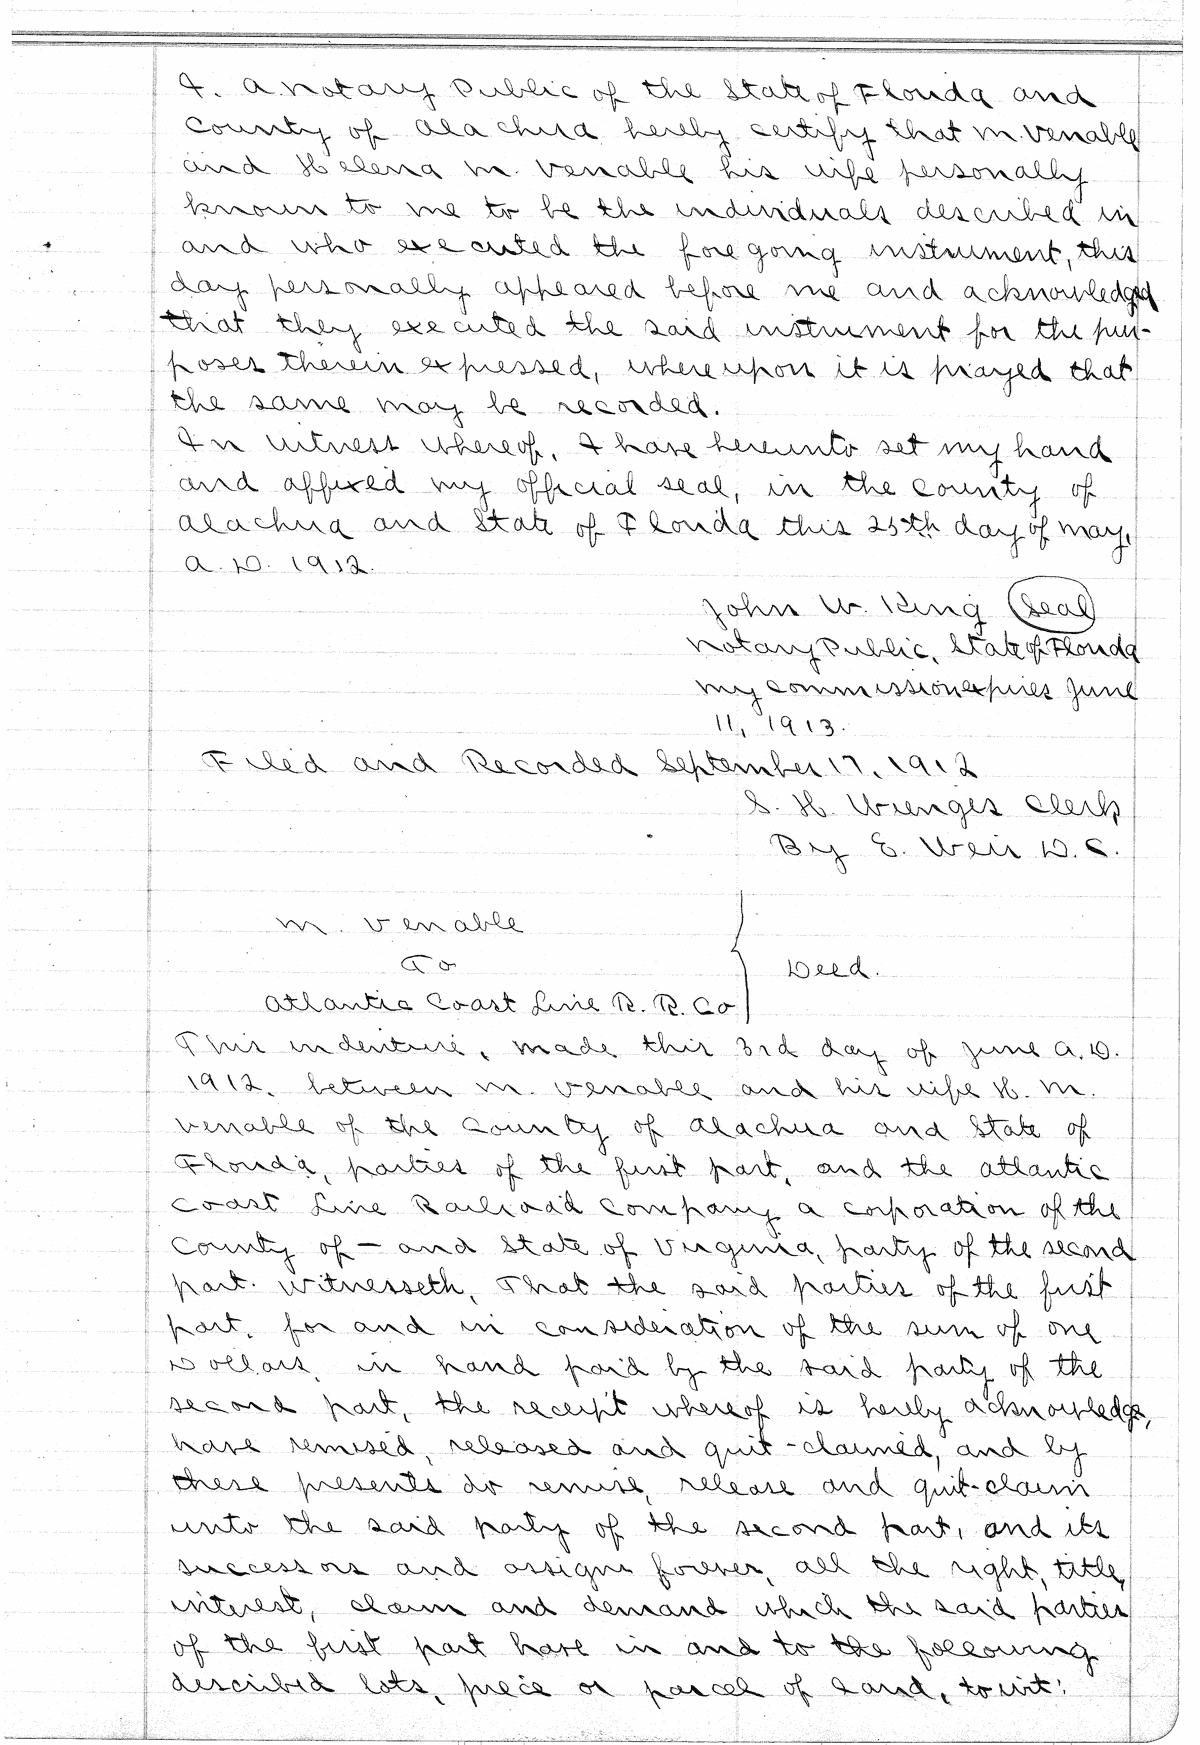 I. a notary Public of the State of Florida and
County of Alachua hereby certify that M. Venable
and Helena M. Venable his wife personally
known to me to be the individuals described in
and who executed the foregoing instrument, this
day personally appeared before me and acknowledged
that they executed the said instrument for the pur-
poses therein expressed, whereupon it is prayed that
the same may be recorded.
In witness whereof, I have hereunto set my hand
and affixed my official seal, in the County of
Alachua and State of Florida this 25th day of May,
A.D. 1912.
John W. King (Seal)
Notary Public, State of Florida
My commission expires June
11, 1913.
Filed and Recorded September 17, 1912
S. H. Wienges Clerk
By E. Weir D.C.
M. Venable
To
Deed.
Atlantic Coast Line R. R. Co
This indenture, made this 3rd day of June A.D.
1912, between M. Venable and his wife H. M.
Venable of the County of Alachua and State of
Florida, parties of the first part, and the Atlantic
Coast Line Railroad Company a corporation of the
County of — and State of Virginia, party of the second
part. Witnesseth, That the said parties of the first
part, for and in consideration of the sum of one
Dollars, in hand paid by the said party of the
second part, the receipt whereof is hereby acknowledge,
have remised, released and quit-claimed, and by
these presents do remise, release and quit-claim
unto the said party of the second part, and its
successors and assigns forever, all the right, title,
interest, claim and demand which the said parties
of the first part have in and to the following
described lots, piece or parcel of land, to wit: